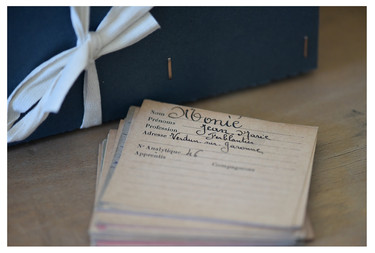 Nom Monié
Prénoms Jean Marie
Profession Ferblantier
Adresse Verdun sur garonne
No Analytique 46
Appendix Compagnons